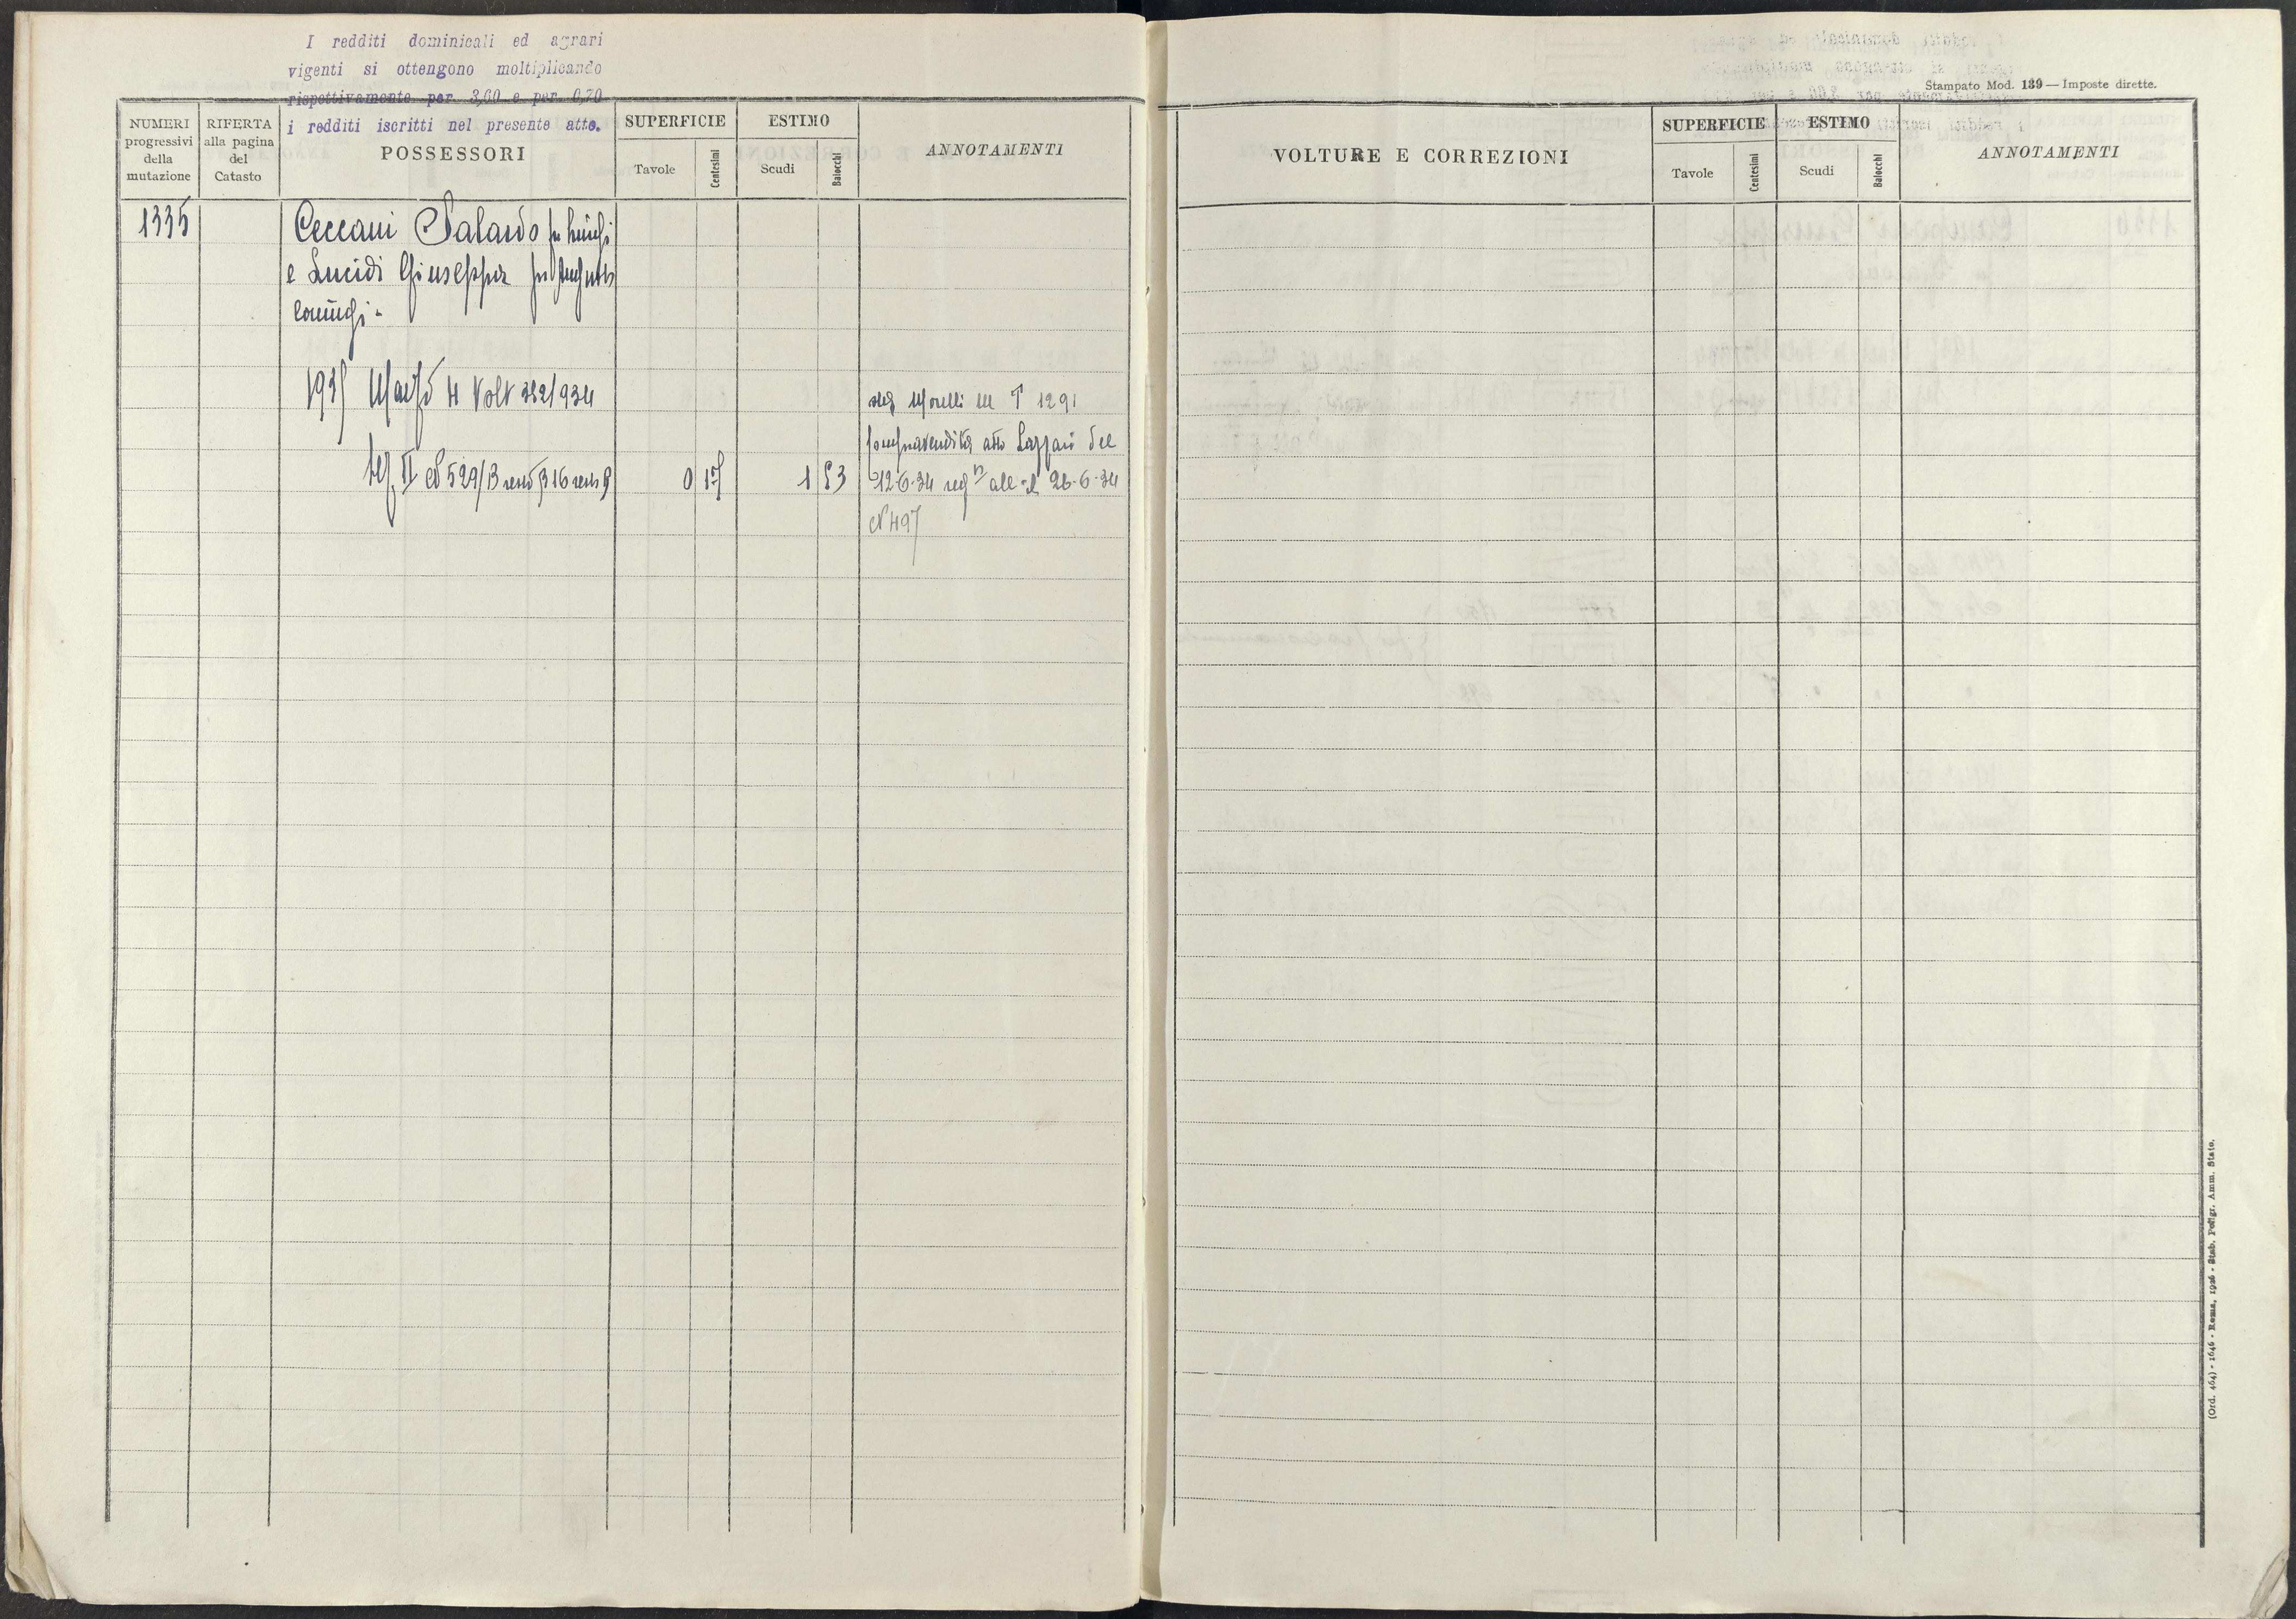 I redditi dominicali ed agrari
vigenti si ottengono moltiplicando
rispettivamente per 3,60 e per 0,70
i redditi iscritti nel presente atto.
NUMERI
progressivi
della
mutazione
RIFERTA
alla pagina
del
Catasto
POSSESSORI
SUPERFICIE
Tavole
Centesimi
ESTIMO
Scudi
Baiocchi
ANNOTAMENTI
1335
Ceccani Salardo fu Luigi
e Lucidi Giuseppa fu
coniugi -
193 Marzo 4 Volt 382/934
dez Morelli M P 1291
compravendita atto Lazzari del
Sez II N 529/B 0 17 1 53 12-6-34 reg al 26-6-34
N 497
Stampato Mod. 139 — Imposte dirette.
VOLTURE E CORREZIONI
SUPERFICIE
Tavole
Centesimi
ESTIMO
Scudi
Baiocchi
ANNOTAMENTI
(Ord. 464) - 1646 - Roma, 1926 - Stab. Poligr. Amm. Stato.